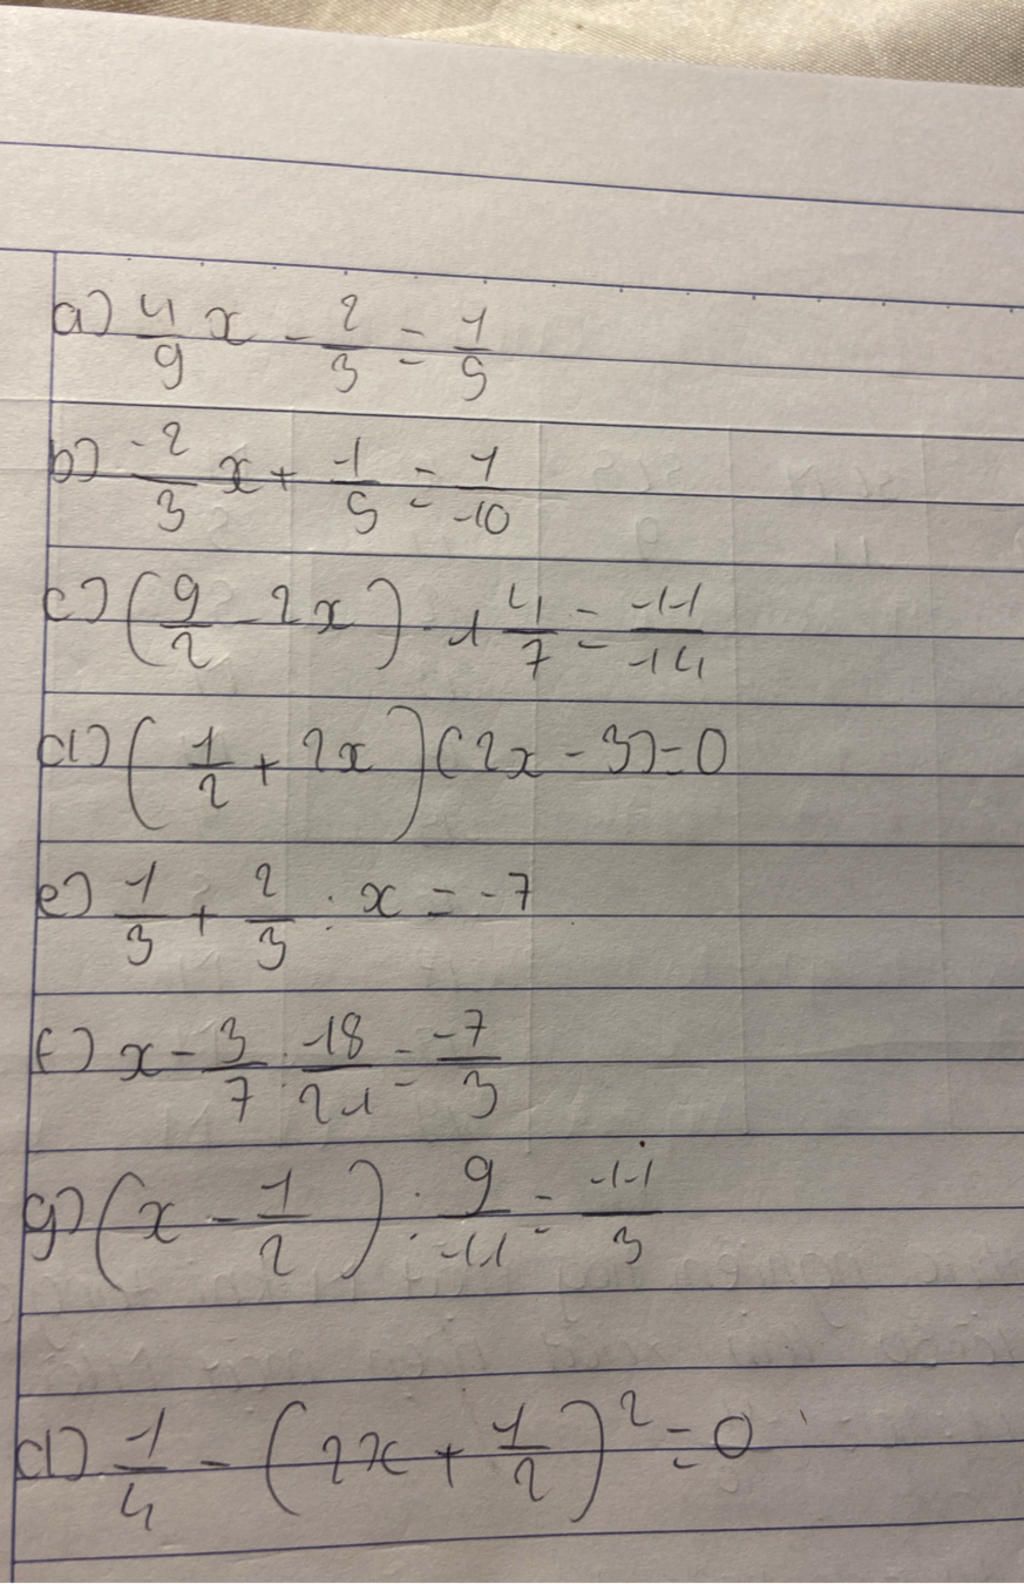 a) 4/9 x - 2/3 = 1/5
b) -2/3 x + 1/5 = 1/-10
c) (9/2 - 2x) · 1 4/7 = 11/14
d) (1/2 + 2x)(2x - 3) = 0
e) 1/3 + 2/3 : x = -7
f) x - 3/7 : 18/21 = -7/3
g) (x - 1/2) : 9/11 = 11/3
d) 1/4 - (2x + 1/2)² = 0